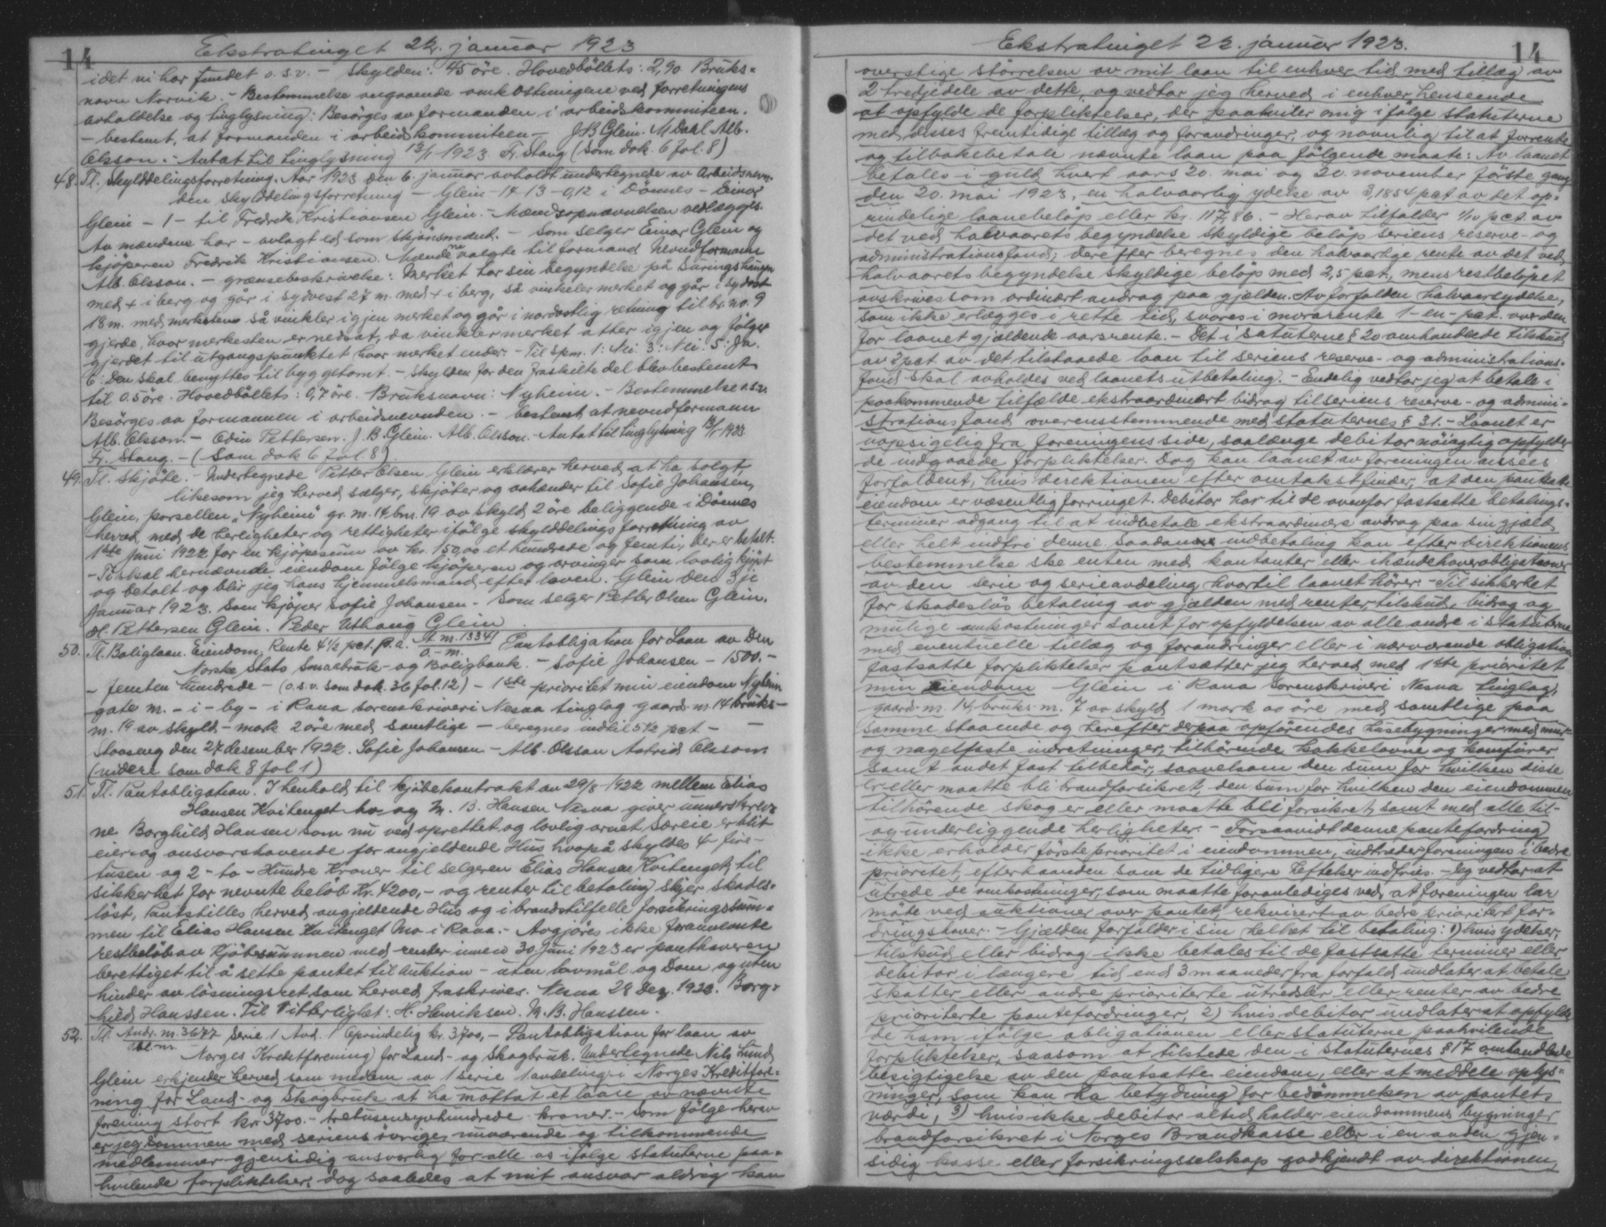 14
Ekstratinget 22. januar 1923
idet vi har fundet o.s.v. - Skylden: 45 öre. Hovedböllets: 2,90 Bruks-
navn Norvik. - Bestemmelse angaaende omkostningene ved forretningens
avholdelse og tinglysning: Besörges av formanden i arbeidskommiteen.
- bestemt, at formanden i arbeidskommiteen - J.B. Glein. M. Dahl. Alb.
Olsson. - Antat til tinglysning 13/1 1923 Fr. Stang (Som dok. 6 fol. 8)
48. Tl. Skylddelingsforretning. Aar 1923 den 6. januar avholdt undertegnede av Arbeidsnevn-
den skylddelingsforretning - Glein - 14 13 - 0,12 i Dönnes - Einar
Glein - 1 - til Fredrik Kristiansen Glein. - Mændsopnævnelsen vedlægges.
Av mændene har - avlagt ed som skjönsmænd. - Som selger Einar Glein og
kjöperen Fredrik Kristiansen. Mændene valgte til formand Nevndformann
Alb. Olsson. - grænsebeskrivelse: Merket tar sin begyndelse på
med + i berg og går i sydvest 27 m. med + i berg, så vinkeler merket og går i sydöst
18 m. med merkesten så vinkler igjen merket og går i nordostlig retning til br. no. 9
gjerde, hvor merkesten er nedsat, da vinkler merket atter igjen og fölger
gjerdet til utgangspunktet hvor merket ender. - Til spm. 1: Nei 3: Nei. 5: Ja.
6: Den skal benyttes til byggetomt. - Skylden for den fraskilte del blev bestemt
til 0.5 öre. Hovedböllets: 0,7 öre. Bruksnavn: Nyheim. - Bestemmelse o.s.v.
Besörges av formannen i arbeidsnevnden. - bestemt at nevndformann
Alb. Olsson. - Edin Pettersen. J.B. Glein. Alb. Olsson. Antat til tinglysning 13/1 1923
Fr. Stang. - (Som dok 6 fol. 8)
49. Tl. Skjöte. - Undertegnede Petter Olsen Glein erklærer herved at ha solgt
likesom jeg herved sælger, skjöter og avhænder til Sofie Johansen,
Glein, parsellen "Nyheim" gr. nr. 14 bnr. 19 av skyld 2 öre beliggende i Dönnes
herred med de herligheter og rettigheter ifölge skylddelingsforretning av
1ste juni 1922 for en kjöpesum av kr. 150,00 et hundrede og femti, der er betalt.
- Ti skal hernævnte eiendom fölge kjöperen og arvinger som lovlig kjöpt
og betalt og blir jeg hans hjemmelsmand efter loven. Glein den 3je
januar 1923. Som kjöper Sofie Johansen - Som selger Petter Olsen Glein.
H. Pettersen Glein. Peder Uthaug Glein
50. Tl. Boliglaan. Eiendom. Rente 4 1/2 pct. p.a. A. nr. 13341 Pantobligation for Laan av Den
Norske Stats Smaabruk- og Boligbank. - Sofie Johansen - 1500.-
- femten hundrede - (o.s.v. som dok. 36 fol. 12) - 1ste prioritet min eiendom Nyheim
gate nr. - i - by - i Rana sorenskriveri Nesna tinglag gaards nr. 14 bruks-
nr. 19 av skyld - mark 2 öre med samtlige - beregnes indtil 5 1/2 pct -
Stoaseng den 27 desember 1922. Sofie Johansen - Alb. Olsson Astrid Olsson
(videre som dok 8 fol 1)
51. Tl. Pantobligation. I henhold til kjöbekontrakt av 29/8 1922 mellem Elias
Hansen Kvitenget Mo og M. B. Hansen Nesna giver underskrev-
ne Borghild Hansen som nu ved oprettet og lovlig ornet Særeie er blit
eier og ansvarshavende for angjeldende Hus hvorpå skyldes 4 - fire -
tusen og 2 - to - Hundre Kroner til selgeren Elias Hansen Kvitenget, til
sikkerhet for nevnte belöb Kr. 4200,- og renter til betaling skjer skades-
löst, pantstilles herved angjeldende Hus og i brandstilfelle forsikringssum-
men til Elias Hansen Kvitenget Mo i Rana. - Avgjöres ikke foranmeldte
restbelöb av Kjöbesummen med renter innen 30 Juni 1923 er panthaveren
berettiget til å sette pantet til Auktion - uten Lovmål og Dom og uten
hinder av lösningsret som herved fraskrives. Nesna 28 Des. 1922. Borg-
hild Hanssen. Til Vitterlighet: H. Henriksen. M. B. Hanssen.
52. Tl. Andr. nr. 3677 Serie 1 Avd. 1 Oprindelig kr. 3700,- Pantobligation for laan av
Norges Kreditforening for Land- og Skogbruk. Undertegnede Nils Lund
Glein erkjender herved som medlem av 1 serie 1 avdeling i Norges Kreditfor-
ning for Land- og Skogbruk at ha mottat et laan av nævnte
forening stort kr. 3700.- tretusensyvhundrede kroner. - Som fölge herav
er jeg sammen med seriens övrige nuværende og tilkommende
medlemmer gjensidig ansvarlig for alle os ifölge statuterne paa-
hvilende forpliktelser, dog saaledes at mit ansvar aldrig kan
Ekstratinget 22. januar 1923.
14
overstige störrelsen av mit laan til enhver tid med tillæg av
2 tredjedele av dette, og vedtar jeg herved i enhver henseende
at opfylde de forpliktelser, der paahviler mig ifölge statuterne
med disses fremtidige tillæg og forandringer, og navnlig til at forrente
og tilbakebetale nævnte laan paa fölgende maate: Av laanet
betales i guld hvert aars 20. mai og 20. november förste gang
den 20. mai 1923, en halvaarlig ydelse av 3,1854 pct av det op-
rindelige laanebelöp eller kr. 117,86. - Herav tilfalder 1/10 pct. av
det ved halvaarets begyndelse skyldige belöp seriens reserve- og
administrationsfond; derefter beregnes den halvaarlige rente av det ved
halvaarets begyndelse skyldige belöp med 2,5 pct, mens restbelöpet
avskrives som ordinært avdrag paa gjælden. Av forfalden halvaarsydelse,
som ikke erlægges i rette tid, svares i morarente 1 - en - pct. over den
for laanet gjældende aarsrente. - Det i statuterne § 20 omhandlede tilskud
av 2 pct av det tilstaaede laan til seriens reserve- og administrations-
fond skal avholdes ved laanets utbetaling. - Endelig vedtar jeg at betale i
paakommende tilfælde ekstraordinært bidrag til seriens reserve- og admini-
strationsfond overensstemmende med statuternes § 31. - Laanet er
uopsigelig fra foreningens side, saalænge debitor nöiagtig opfylder
de indgaaede forpliktelser. Dog kan laanet av foreningen ansees
forfaldent, hvis direktionen efter omtakst finder, at den pantsatte
eiendom er væsentlig forringet. Debitor har til de ovenfor fastsatte betalings-
terminer adgang til at indbetale ekstraordinære avdrag paa sin gjæld
eller helt indfri denne. Saadanne indbetaling kan efter direktionens
bestemmelse ske enten med kontanter eller ihændehaverobligationer
av den serie og serieavdeling hvortil laanet hörer. - Til sikkerhet
for skadeslös betaling av gjælden med renter, tilskud, bidrag og
mulige omkostninger samt for opfyldelsen av alle andre i statuterne
med eventuelle tillæg og forandringer eller i nærværende obligation
fastsatte forpliktelser pantsætter jeg herved med 1ste prioritet
min eiendom Glein i Rana Sorenskriveri Nesna tinglag,
gaards nr. 14, bruks nr. 7 av skyld 1 mark 00 öre med samtlige paa
samme staaende og herefter derpaa opförendes husebygninger med mur-
og nagelfaste indretninger, tilhörende kakkelovne og komfurer
samt andet fast tilbehör, saavelsom den sum for hvilken disse
er eller maatte bli brandforsikret, den sum for hvilken den eiendommen
tilhörende skog er eller maatte bli forsikret, samt med alle til-
og underliggende herligheter. - Forsaavidt denne pantefordring
ikke erholder förste prioritet i eiendommen, indtræder foreningen i bedre
prioritet, efterhaanden som de tidligere heftelser indfries. - Jeg vedtar at
utrede de omkostninger, som maatte foranlediges ved, at foreningen lar
möte ved auktioner over pantet, rekvirert av bedre prioritert for-
dringshaver. - Gjælden forfalder i sin helhet til betaling: 1) hvis ydelser,
tilskud eller bidrag ikke betales til de fastsatte terminer eller
debitor i længere tid end 3 maaneder fra forfald undlater at betale
skatter eller andre prioriterte utredsler eller renter av bedre
prioriterte pantefordringer, 2) hvis debitor undlater at opfylde
de ham ifölge obligationen eller statuterne paahvilende
forpliktelser, saasom at tilstede den i statuternes § 17 omhandlede
besigtigelse av den pantsatte eiendom, eller at meddele oplys-
ninger, som kan ha betydning for bedömmelsen av pantets
værdi, 3) hvis ikke debitor altid holder eiendommens bygninger
brandforsikret i Norges Brandkasse eller i en anden gjen-
sidig kasse eller forsikringsselskap godkjendt av direktionen,